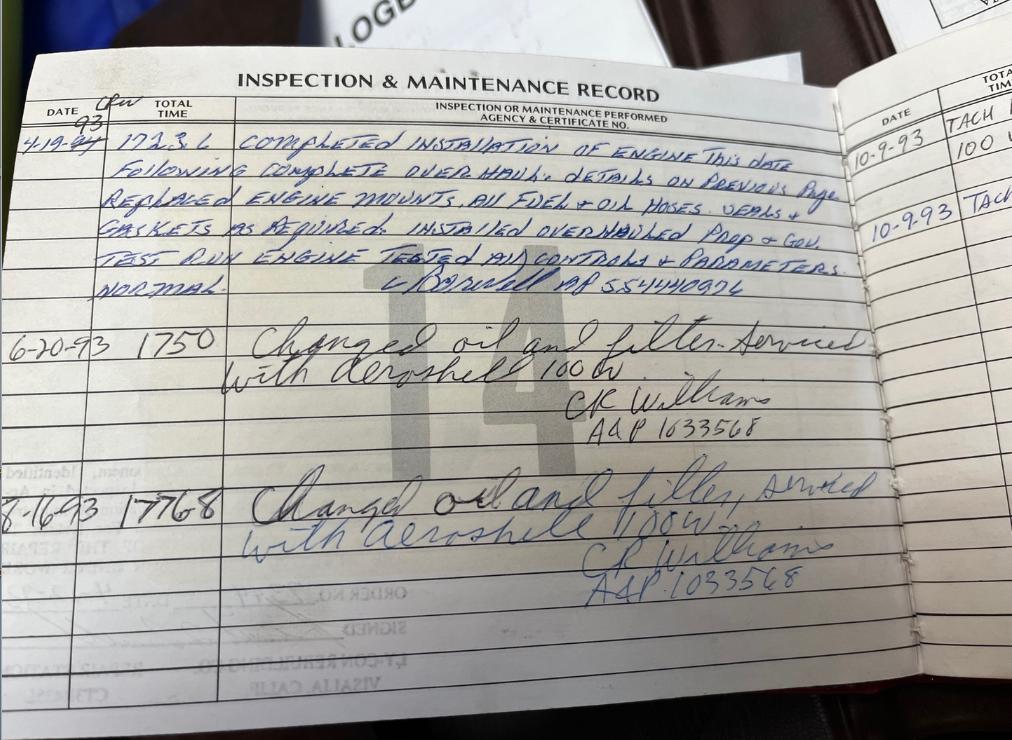 LOGB
INSPECTION & MAINTENANCE RECORD
DATE
CRW
TOTAL TIME
INSPECTION OR MAINTENANCE PERFORMED
AGENCY & CERTIFICATE NO.
93
4-19-94 1723.6 COMPLETED INSTALLATION OF ENGINE THIS DATE
FOLLOWING COMPLETE OVERHAUL. DETAILS ON PREVIOUS PAGE
REPLACED ENGINE MOUNTS. All FUEL + OIL HOSES. SEALS +
GASKETS AS REQUIRED. INSTALLED OVERHAULED PROP + GOV.
TEST RUN ENGINE TESTED All CONTROLS + PARAMETERS.
NORMAL. AP 554440976
14
6-20-93 1750 Changed oil and filter. Serviced
with Aeroshell 100W
CR Williams
A&P 1033568
8-16-93 1776.8 Changed oil and filter, serviced
with Aeroshell 100W.
CR Williams
A&P 1033568
ORDER NO.
DATE
SIGNED
REPAIR STATION
VISALIA, CALIF.
DATE
10-9-93 TACH
100
10-9-93 TACH